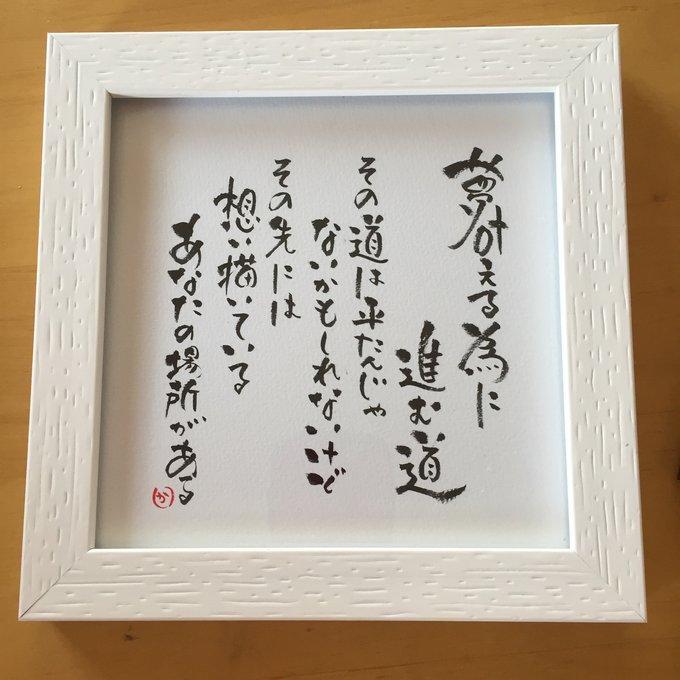 夢叶える為に
進む道
その道は平たんじゃ
ないかもしれないけど
その先には
想い描いている
あなたの場所がある
か